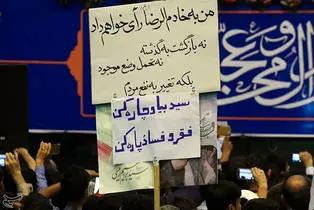 من به خادم الرضا رأی خواهم داد
نه بازگشت به گذشته
نه تحمل وضع موجود
بلکه تغییر به نفع مردم
سید بیا و چاره کن
فقر و فساد پاره کن
و عجل